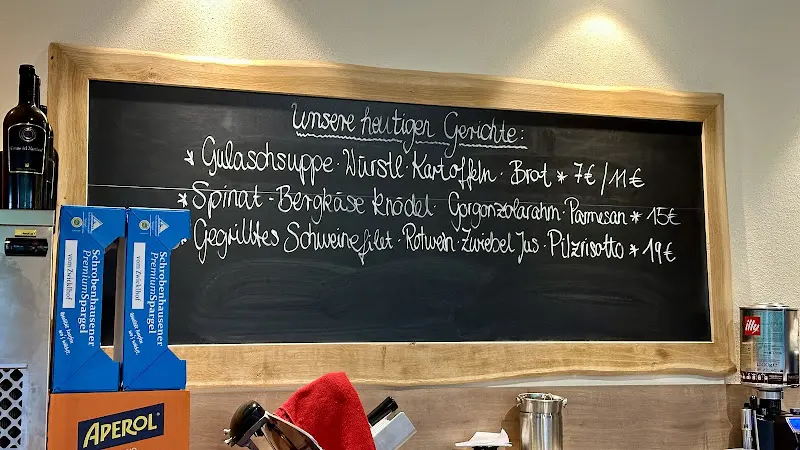 Unsere heutigen Gerichte:
* Gulaschsuppe · Würstl · Kartoffeln · Brot * 7€ / 11€
* Spinat - Bergkäse Knödel · Gorgonzolarahm · Parmesan * 15€
* Gegrilltes Schweinefilet · Rotwein · Zwiebel Jus · Pilzrisotto * 19€
Schrobenhausener
PremiumSpargel
vom Zwicklhof
Schrobenhausener
PremiumSpargel
vom Zwicklhof
APEROL
illy